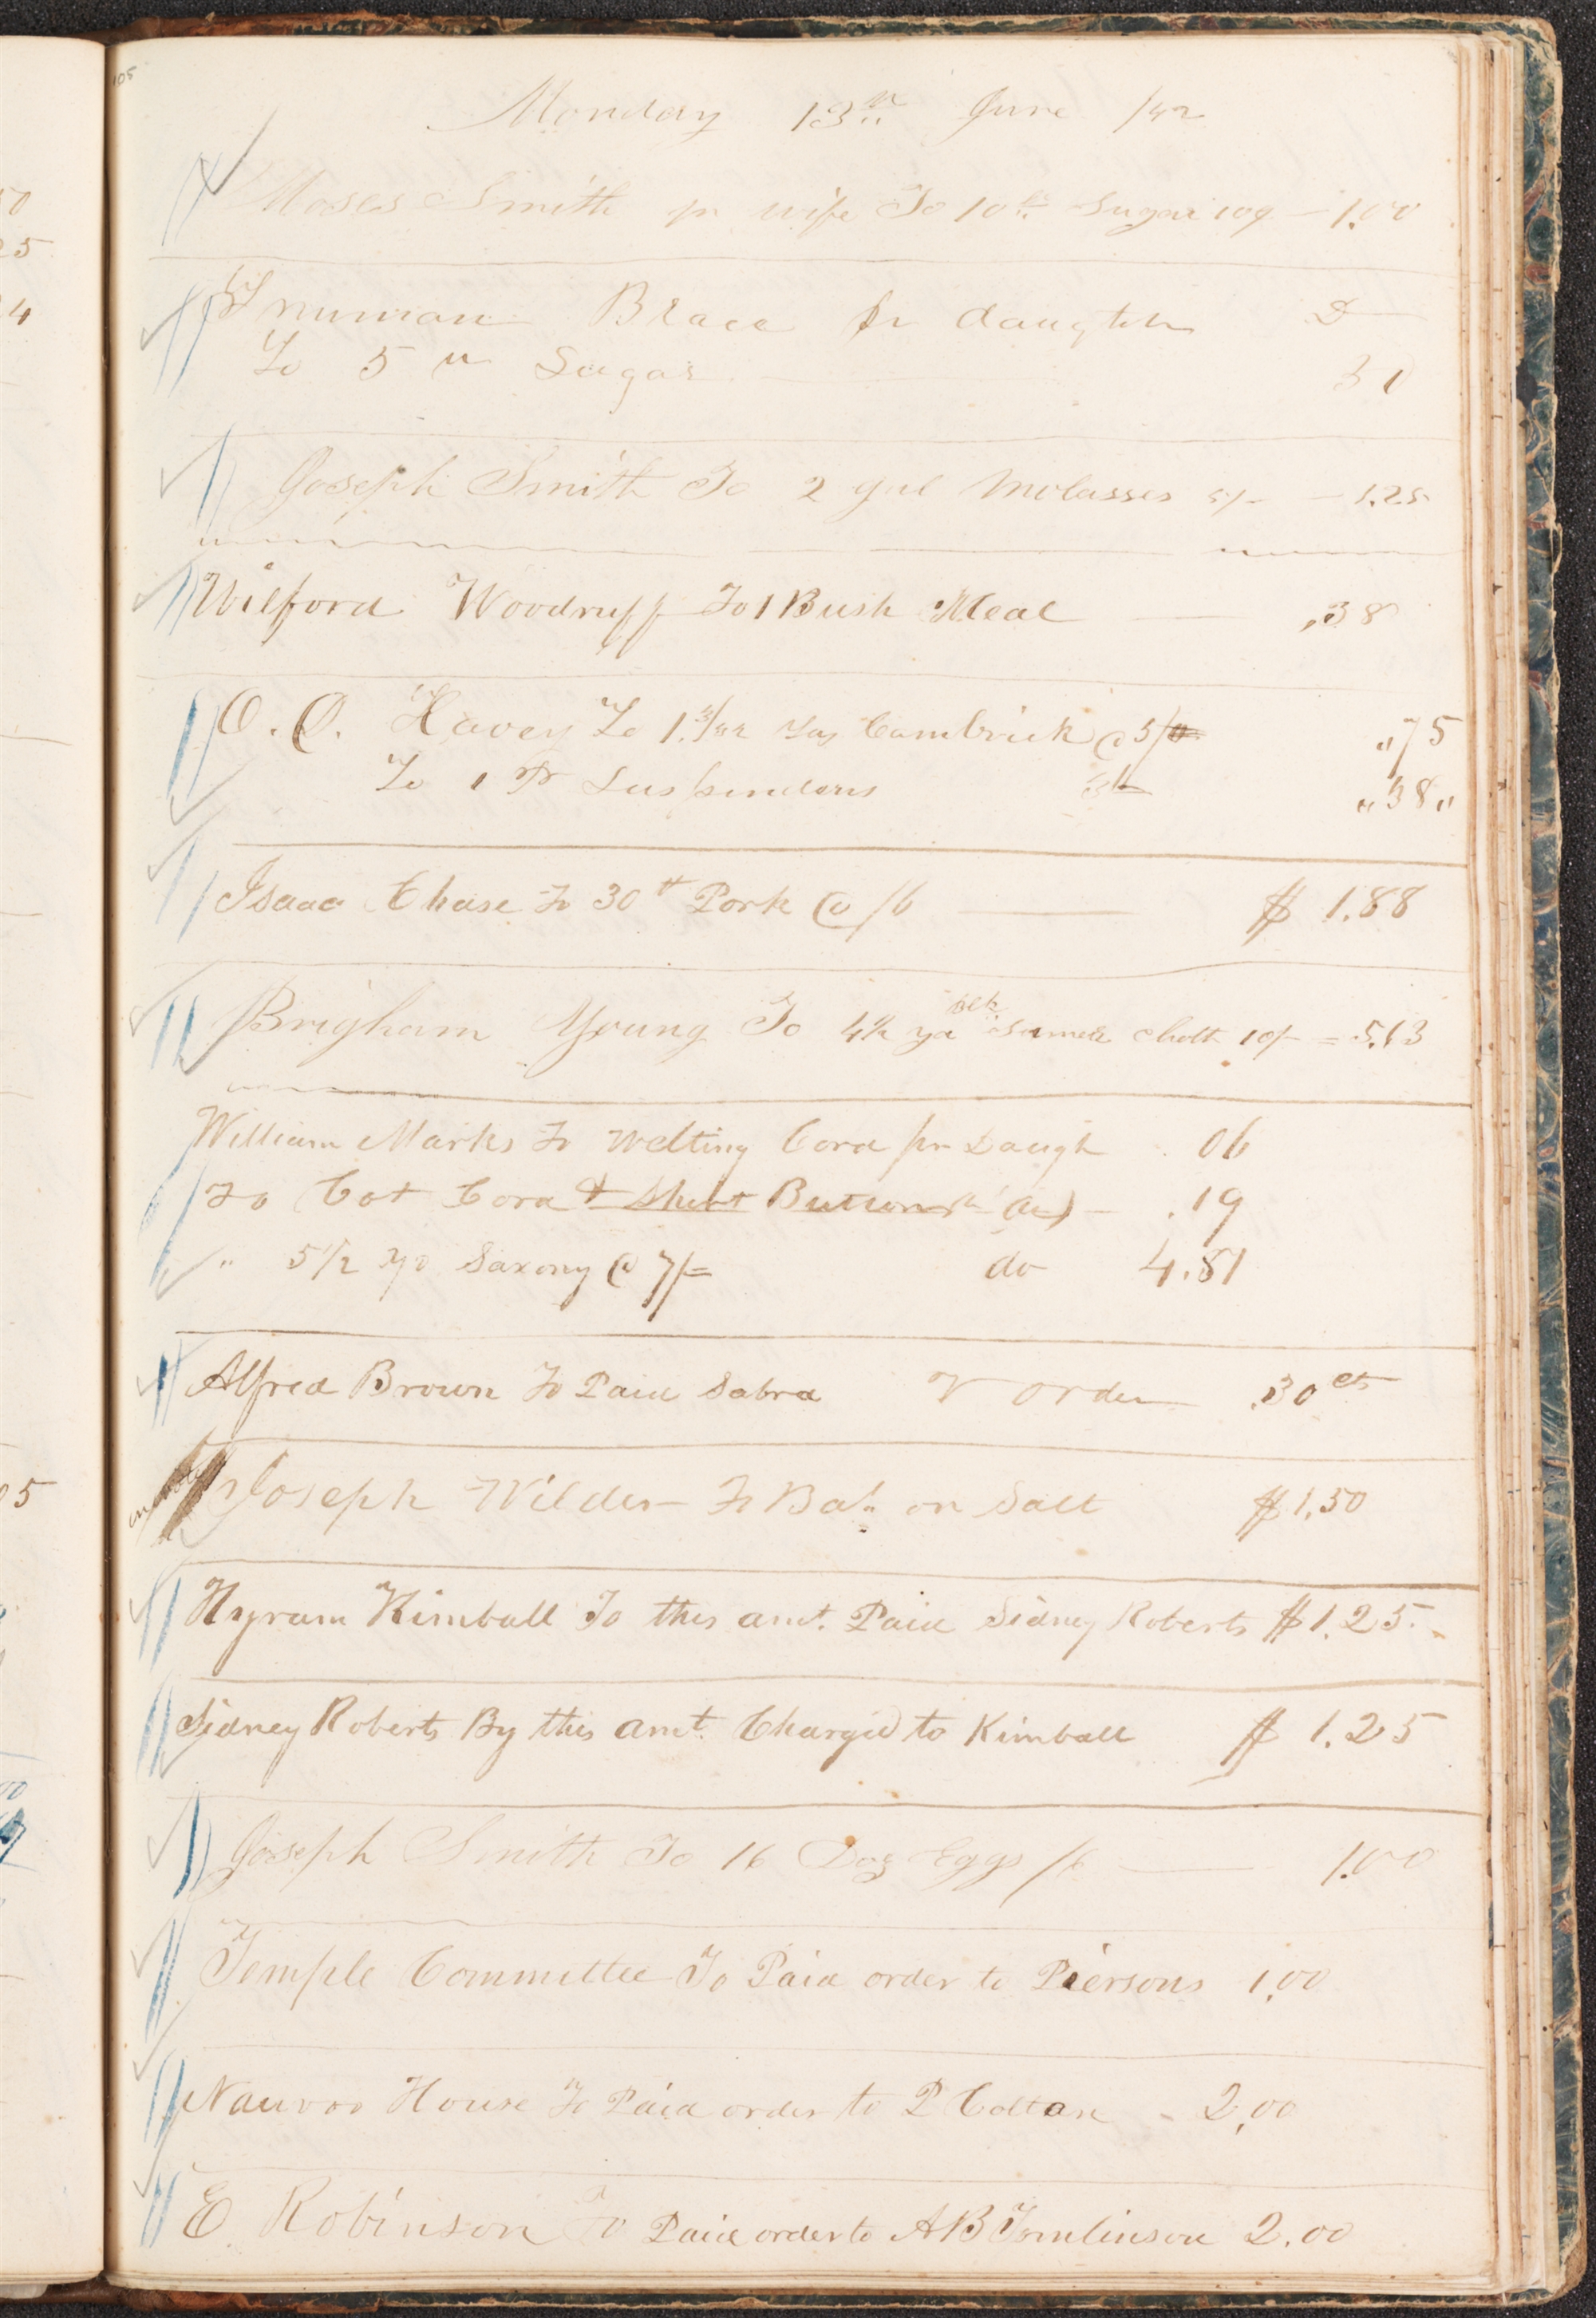 105
Monday 13th June /42
Moses Smith pr wife To 10 lb Sugar 10¢ — 1.00
Truman Brace pr daughter D
To 5 " Sugar 50
Joseph Smith To 2 gal Molasses 5/- — 1.25
Wilford Woodruff To 1 Bush Meal — ,38
O. Q. Havey To 1.3/ yds Cambrick @ 3/ "75
To 1 Pr Suspenders 3/- "38"
Isaac Chase To 30 # Pork @ /6 — $ 1.88
Brigham Young To 4½ yd Blk Sumer Cloth 10/- = 5.63
William Marks To Welting Cord pr Daugh .06
To Cot Cord & Shirt Buttons — .19
" 5 1/2 yd Saxony @ 7/= do 4.81
Alfred Brown To Paid Sabra order .30 cts
Joseph Wilder — To Bal. on Salt $1.50
Hyram Kimball To this amt. Paid Sidney Roberts $1.25
Sidney Roberts By this amt. Charged to Kimball $ 1.25
Joseph Smith To 16 Doz Eggs /6 — 1.00
Temple Committee To Paid order to Piersons 1,00
Nauvoo House To Paid order to P Coltan - 2,00
E Robinson To Paid order to A B Tomlinson 2.00
50
25
4
05
00